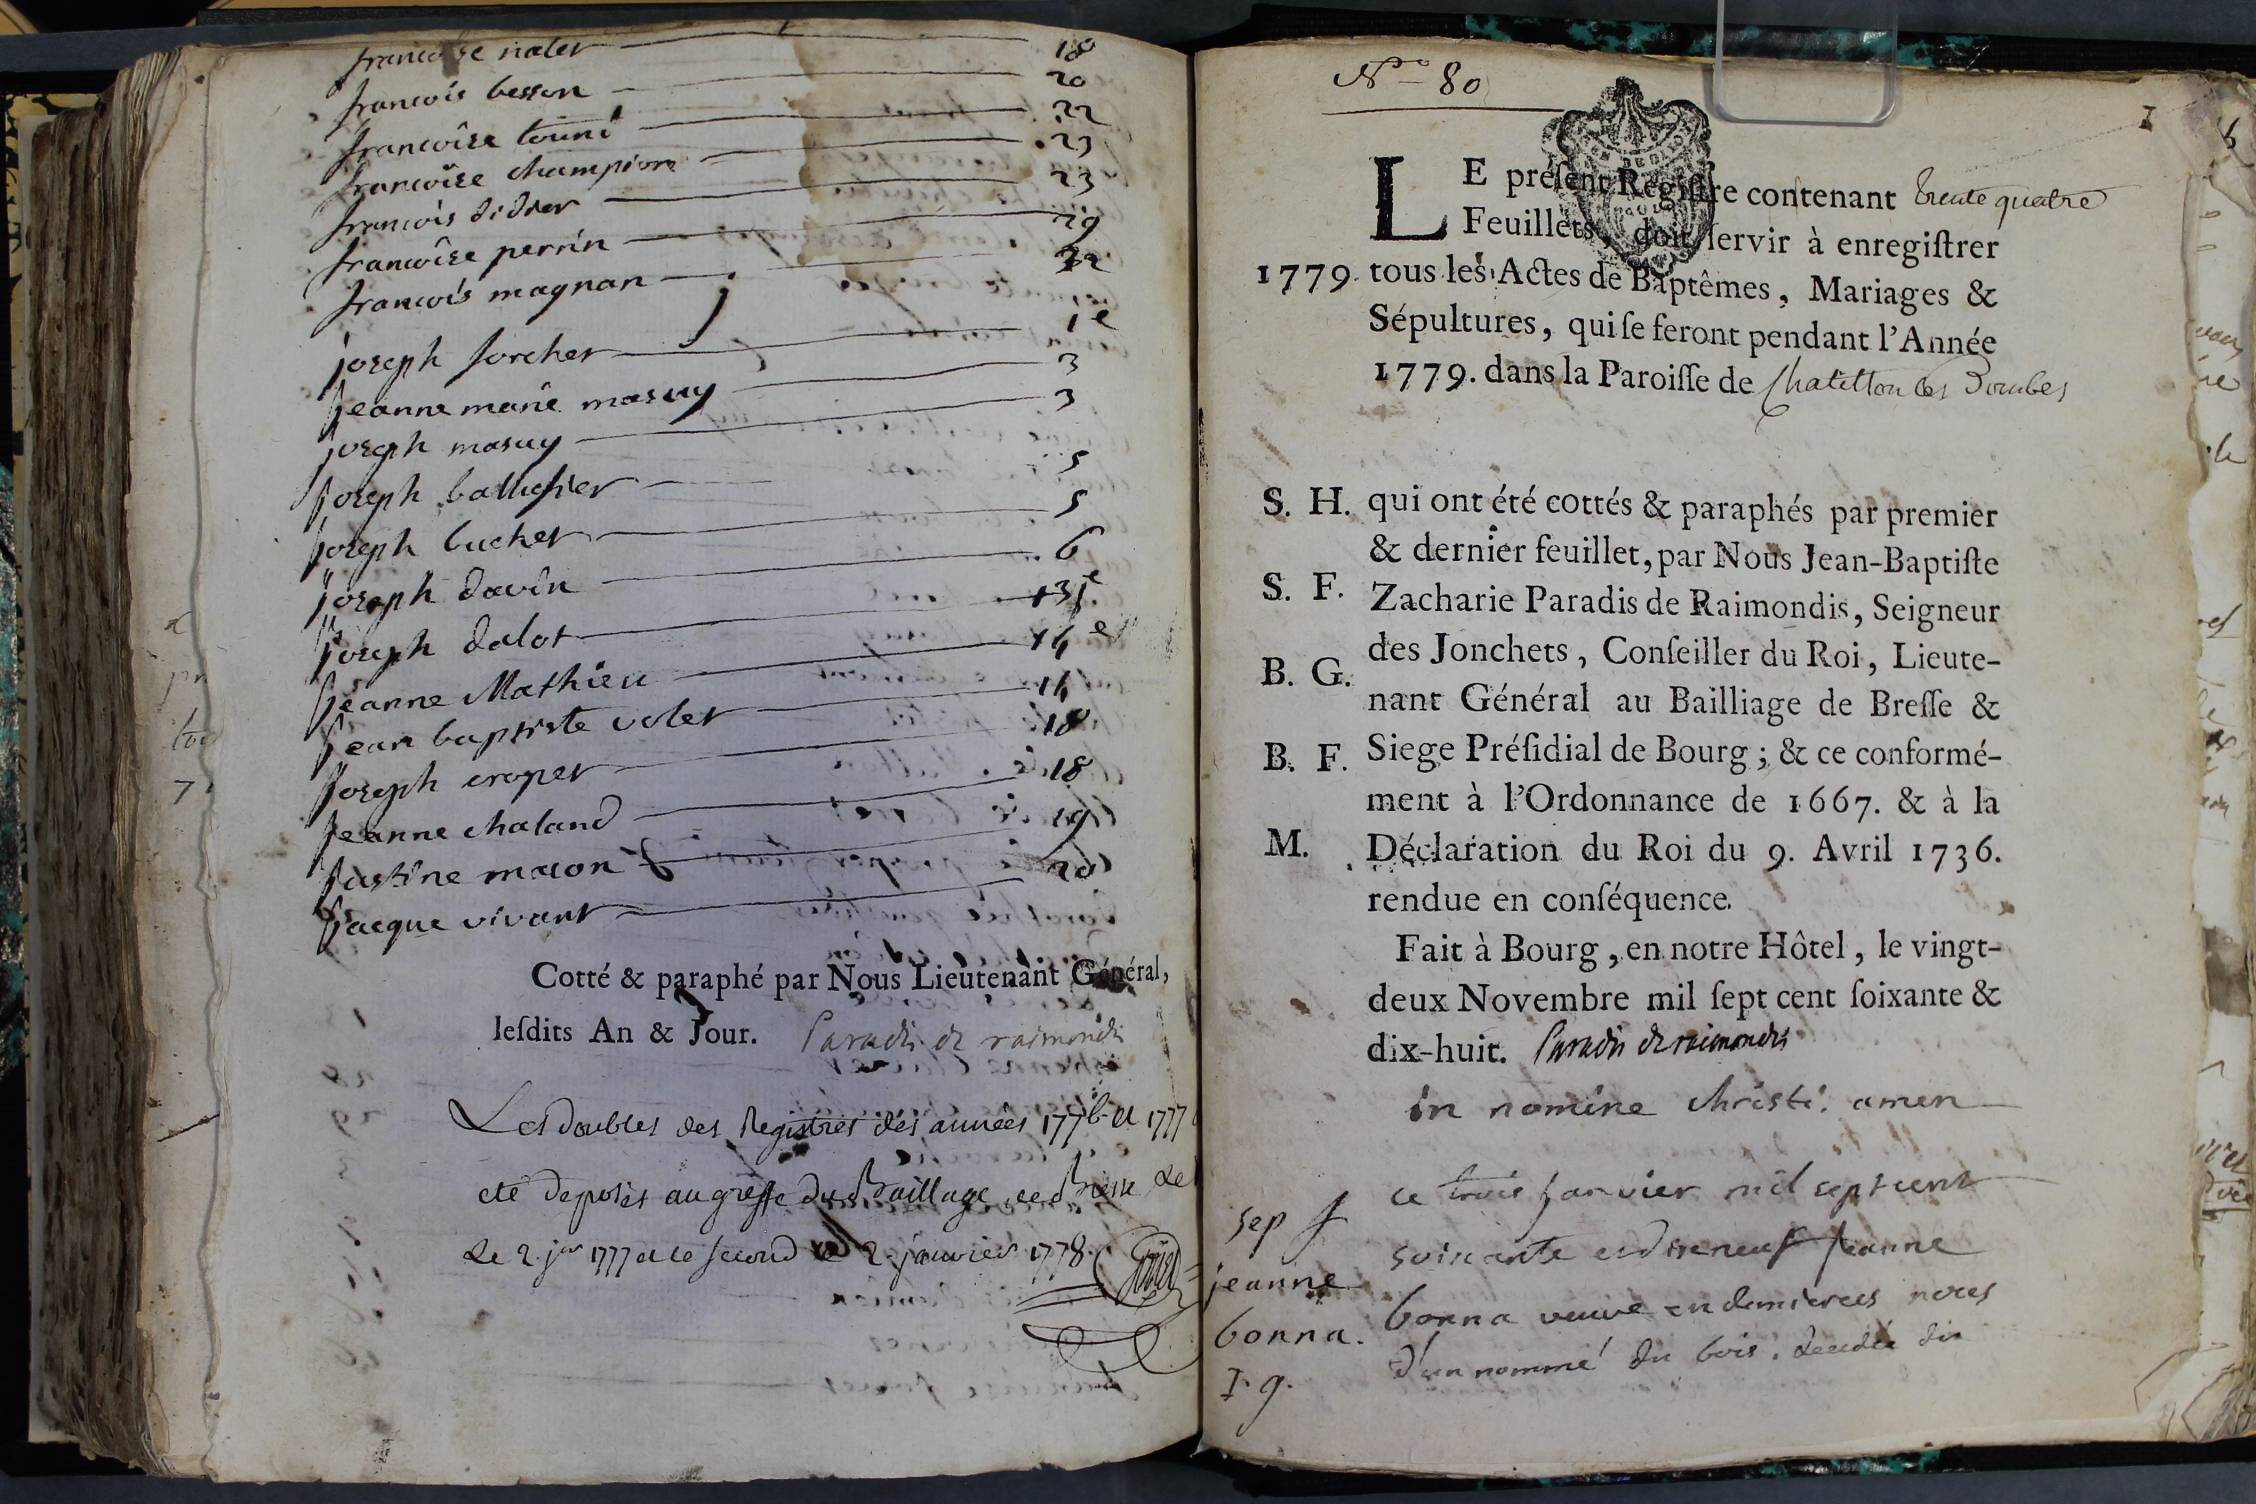 francoise nater 18
francois besson 20
francoise 22
francoise championt 23
francois didier 23
francoise perrin 29
francois magnan 32
j
joseph forcher 1e
jeanne marie masuy 3
joseph masuy 3
joseph ballufier 5
joseph bucher 5
joseph davin 6
joseph dalot
jeanne Mathieu 14e
jean baptiste volet 14
joseph croper 18
jeanne chaland 18
justine macon 19
jacque vivant 20
Cotté & paraphé par Nous Lieutenant Général,
leſdits An & Jour. Paradis de raimondis
Les doubles des Registres des années 1776 et 1777
eté deposés au greffe du Baillage de Bresse le
Le 2 jer 1777 et le second le 2 janvier 1778.
No 80
I
LE préſent Regiſtre contenant trente quatre
Feuillets, doit ſervir à enregiſtrer
1779. tous les Actes de Baptêmes, Mariages &
Sépultures, qui ſe feront pendant l'Année
1779. dans la Paroiſſe de Chatillon les Dombes
S. H. qui ont été cottés & paraphés par premier
& dernier feuillet, par Nous Jean-Baptiſte
S. F. Zacharie Paradis de Raimondis, Seigneur
des Jonchets, Conſeiller du Roi, Lieute-
B. G. nant Général au Bailliage de Breſſe &
B. F. Siege Préſidial de Bourg; & ce conformé-
ment à l'Ordonnance de 1667. & à la
M. Déclaration du Roi du 9. Avril 1736.
rendue en conſéquence.
Fait à Bourg, en notre Hôtel, le vingt-
deux Novembre mil ſept cent ſoixante &
dix-huit. Paradis de raimondis
in nomine christi. amen
sep f
jeanne
bonna.
I g.
ce trois janvier mil sept cent
soixante et dixneuf jeanne
bonna veuve en dernieres noces
d'un nommé du bois. decedée